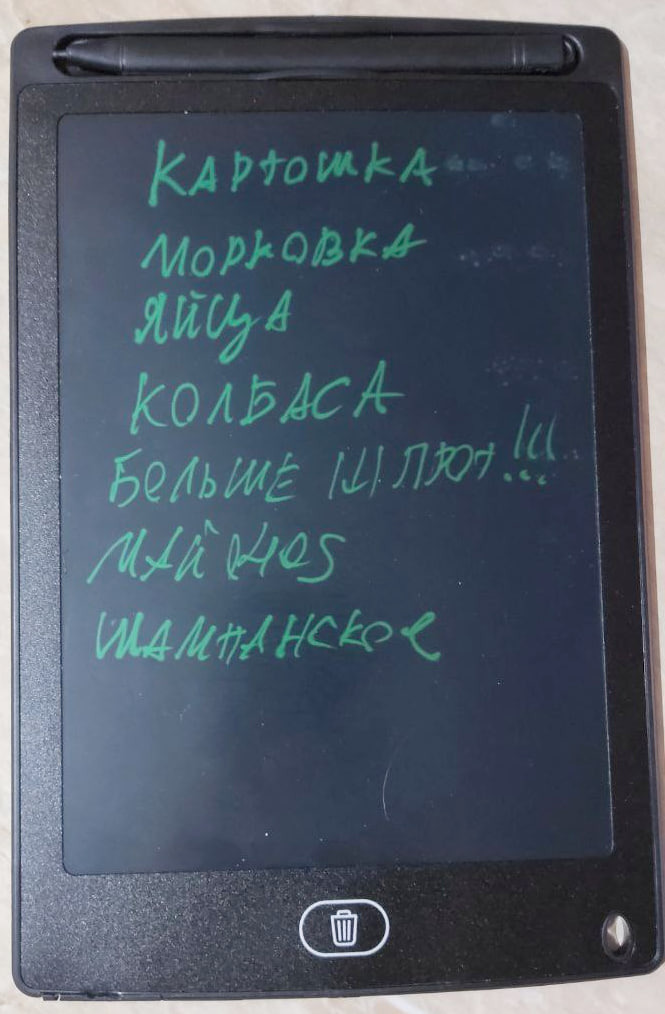 КАРТОШКА
МОРКОВКА
ЯЙЦА
КОЛБАСА
БОЛЬШЕ ШПРОТ!!!
МАЙОНЕЗ
ШАМПАНСКОЕ